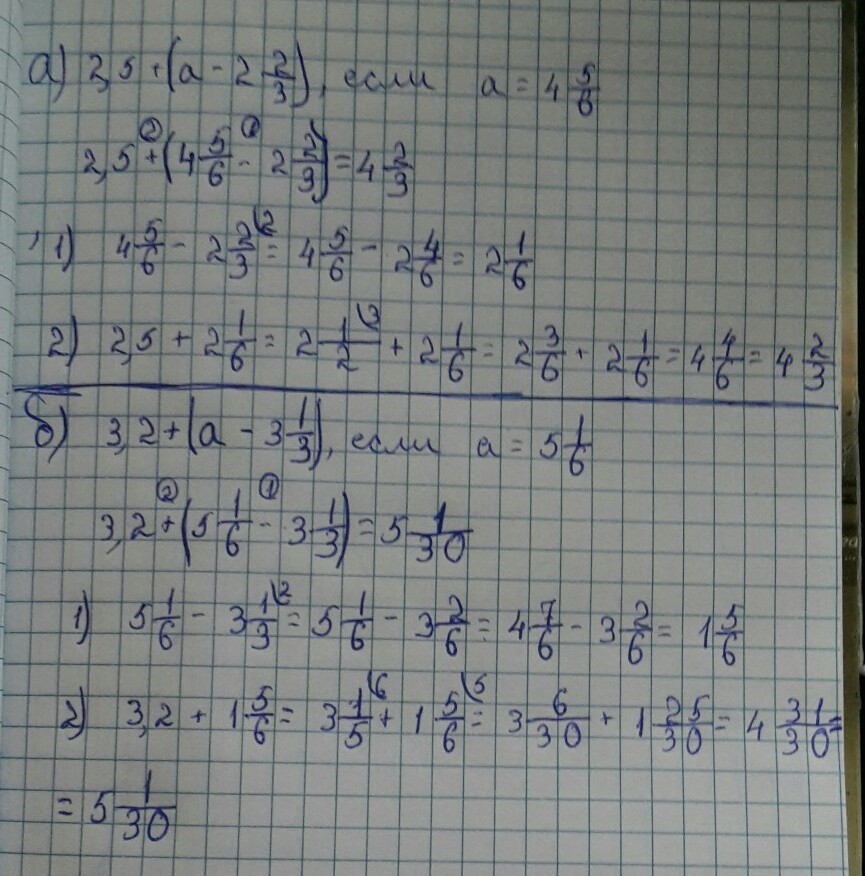 а) 2,5 + (а - 2 2/3), если а = 4 5/6
2,5 +② (4 5/6 -① 2 2/3) = 4 2/3
1) 4 5/6 - 2 2/3⁽² = 4 5/6 - 2 4/6 = 2 1/6
2) 2,5 + 2 1/6 = 2 1/2⁽³ + 2 1/6 = 2 3/6 + 2 1/6 = 4 4/6 = 4 2/3
б) 3,2 + (а - 3 1/3), если а = 5 1/6
3,2 +② (5 1/6 -① 3 1/3) = 5 1/30
1) 5 1/6 - 3 1/3⁽² = 5 1/6 - 3 2/6 = 4 7/6 - 3 2/6 = 1 5/6
2) 3,2 + 1 5/6 = 3 1/5⁽⁶ + 1 5/6⁽⁵ = 3 6/30 + 1 25/30 = 4 31/30 =
= 5 1/30